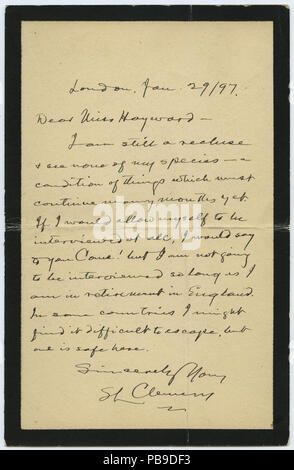 London, Jan. 29/97.
Dear Miss Hayward—
I am still a recluse
& see none of my species—a
condition of things which must
continue many months yet.
If I would allow myself to be
interviewed at all, I would say
to you Come! but I am not going
to be interviewed so long as I
am in retirement in England.
In some countries I might
find it difficult to escape, but
one is safe here.
Sincerely Yours
SL Clemens
alamy
alamy
Image ID: PB9DF3
www.alamy.com